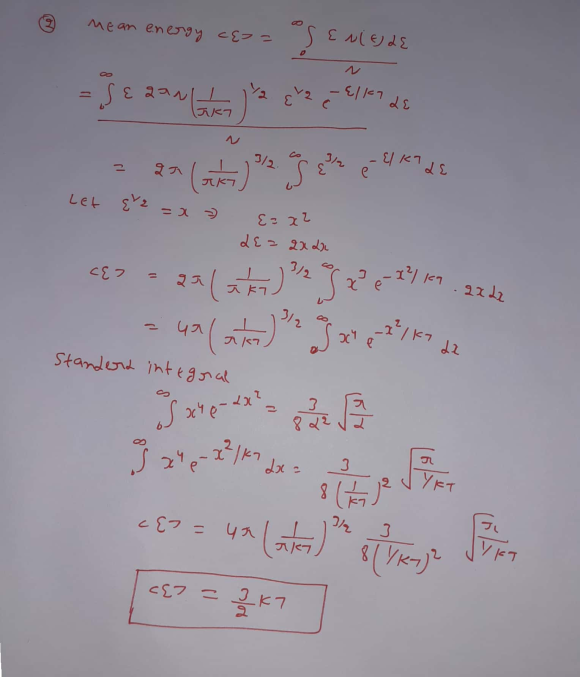 ② Mean energy <ε> = ∫₀^∞ ε N(ε)dε / N
= ∫₀^∞ ε 2πN(1/πKT)^1/2 ε^1/2 e^-ε/KT dε / N
= 2π(1/πKT)^3/2 ∫₀^∞ ε^3/2 e^-ε/KT dε
Let ε^1/2 = x ⇒ ε = x²
dε = 2xdx
<ε> = 2π(1/πKT)^3/2 ∫₀^∞ x³ e^-x²/KT . 2xdx
= 4π(1/πKT)^3/2 ∫₀^∞ x⁴ e^-x²/KT dx
Standerd integral
∫₀^∞ x⁴ e^-αx² = 3/8α² √(π/α)
∫₀^∞ x⁴ e^-x²/KT dx = 3/8(1/KT)² √(π/1/KT)
<ε> = 4π(1/πKT)^3/2 3/8(1/KT)² √(π/1/KT)
<ε> = 3/2 KT